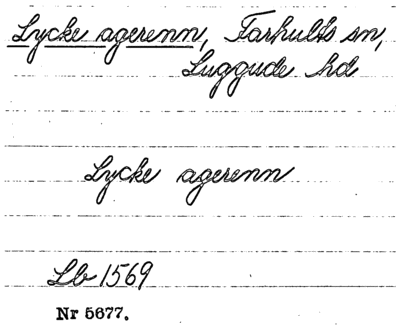 Lycke agerenn, Farhults sn,
Luggude hd
Lycke agerenn
Lb 1569
Nr 5677.